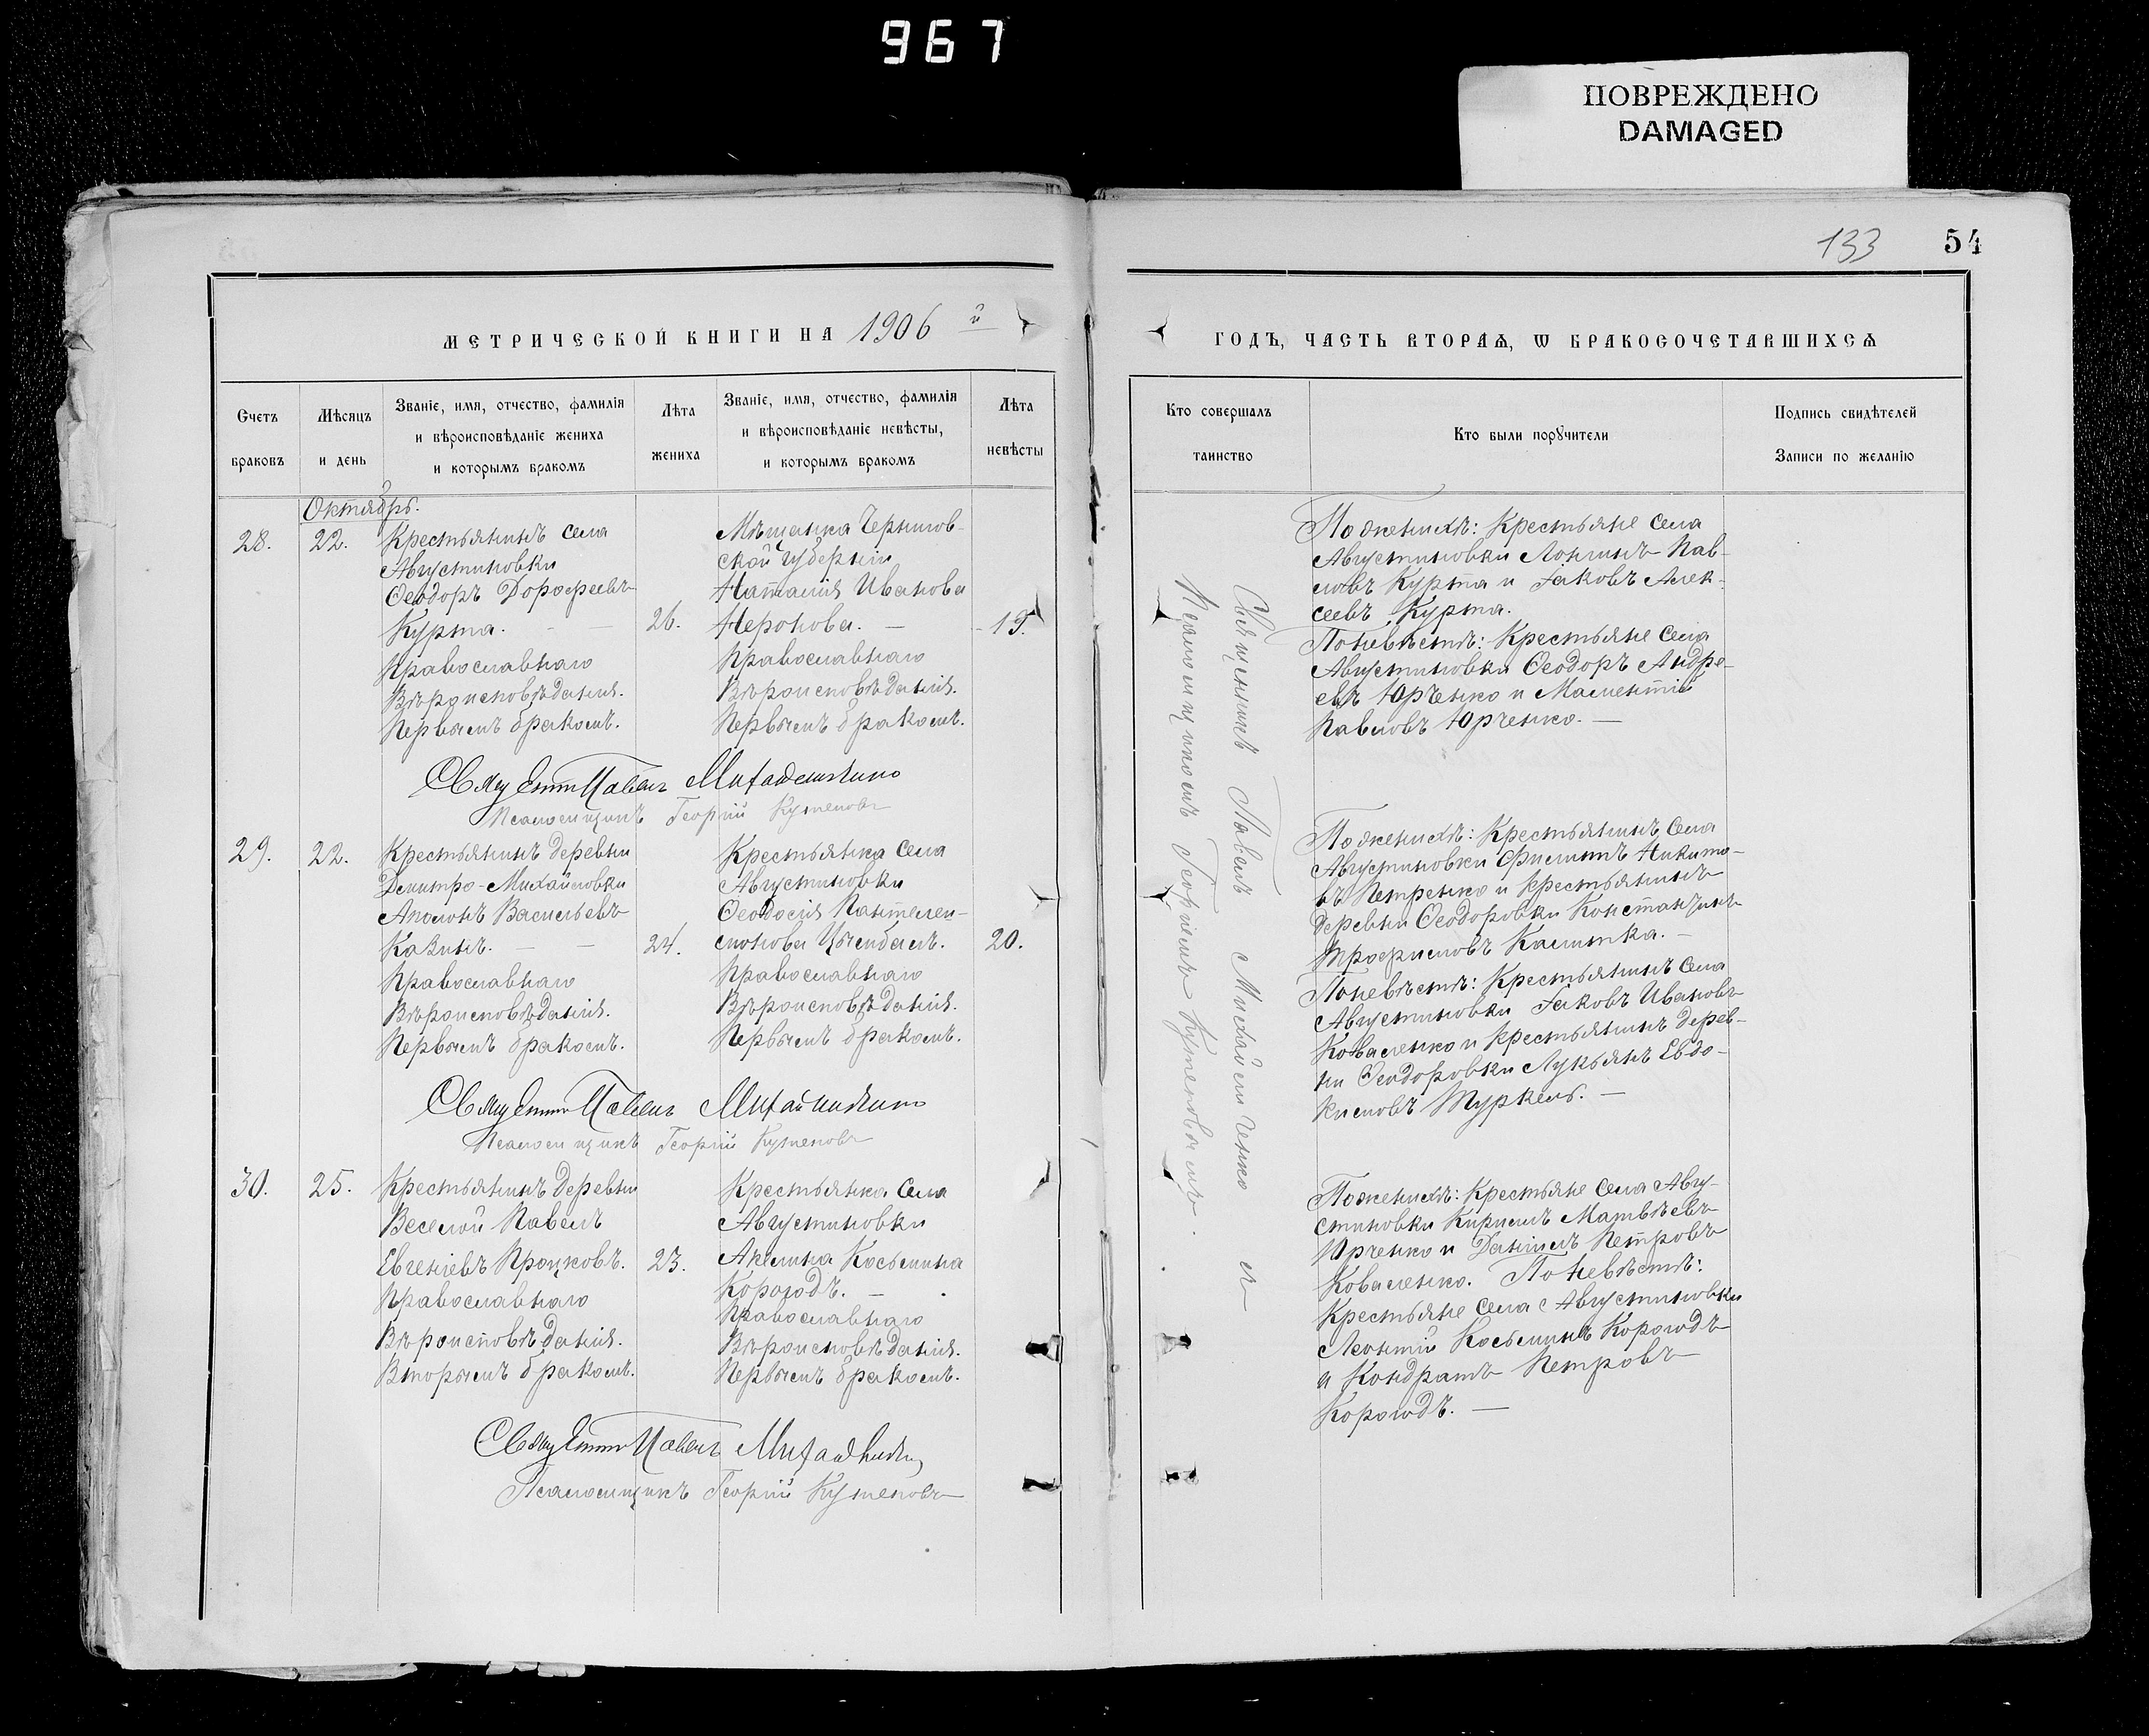 967
ПОВРЕЖДЕНО
DAMAGED
133 54
МЕТРИЧЕСКОЙ КНИГИ НА 1906 й
Счетъ браковъ
Мѣсяцъ и день
Званіе, имя, отчество, фамилія
и вѣроисповѣданіе жениха
и которымъ бракомъ
Лѣта жениха
Званіе, имя, отчество, фамилія
и вѣроисповѣданіе невѣсты,
и которымъ бракомъ
Лѣта невѣсты
Октябрь.
28. 22.
Крестьянинъ села
Августиновки
Ѳеодоръ Дороѳеевъ
Курта. 26.
Православнаго
Вѣроисповѣданія.
Первымъ бракомъ.
Мѣщанка Чернигов-
ской губерніи
Наталія Иванова
Неронова. 19.
Православнаго
Вѣроисповѣданія.
Первымъ бракомъ.
Павелъ
Псаломщикъ Георгій
29. 22.
Крестьянинъ деревни
Дмитро-Михайловки
Аполонъ Васильевъ
Казинъ. 24.
Православнаго
Вѣроисповѣданія.
Первымъ бракомъ.
Крестьянка села
Августиновки
Ѳеодосія Пантелеи-
монова Цымбалъ. 20.
Православнаго
Вѣроисповѣданія.
Первымъ бракомъ.
Павелъ
Псаломщикъ Георгій
30. 25.
Крестьянинъ деревни
Веселой Павелъ
Евгеніевъ Процковъ. 23.
Православнаго
Вѣроисповѣданія.
Вторымъ бракомъ.
Крестьянка села
Августиновки
Акелина Косьмина
Корогодъ.
Православнаго
Вѣроисповѣданія.
Первымъ бракомъ.
Павелъ
Псаломщикъ Георгій
ГОДЪ, ЧАСТЬ ВТОРАЯ, Ѡ БРАКОСОЧЕТАВШИХСЯ
Кто совершалъ
таинство
Кто были порꙋчители
Подпись свидѣтелей
Записи по желанію
Священникъ Павелъ Михайличенко и
Псаломщикомъ Георгіемъ
По женихѣ: Крестьяне села
Августиновки Лонгинъ Пав-
ловъ Курта и Іаковъ Алек-
сеевъ Курта.
По невѣстѣ: Крестьяне села
Августиновки Ѳеодоръ Андре-
евъ Юрченко и Мелентій
Павловъ Юрченко.
По женихѣ: Крестьянинъ села
Августиновки Филиппъ Никито-
въ Петренко и крестьянинъ
деревни Ѳеодоровки Константинъ
Трофимовъ Калитка.
По невѣстѣ: Крестьянинъ села
Августиновки Іаковъ Ивановъ
Коваленко и крестьянинъ дерев-
ни Ѳеодоровки Лукьянъ Евдо-
кимовъ Туркелъ.
По женихѣ: Крестьяне села Авгу-
стиновки Кириллъ Матвѣевъ
Юрченко и Даніилъ Петровъ
Коваленко. По невѣстѣ:
Крестьяне села Августиновки
Леонтій Косьминъ Корогодъ
и Кондратъ Петровъ
Корогодъ.